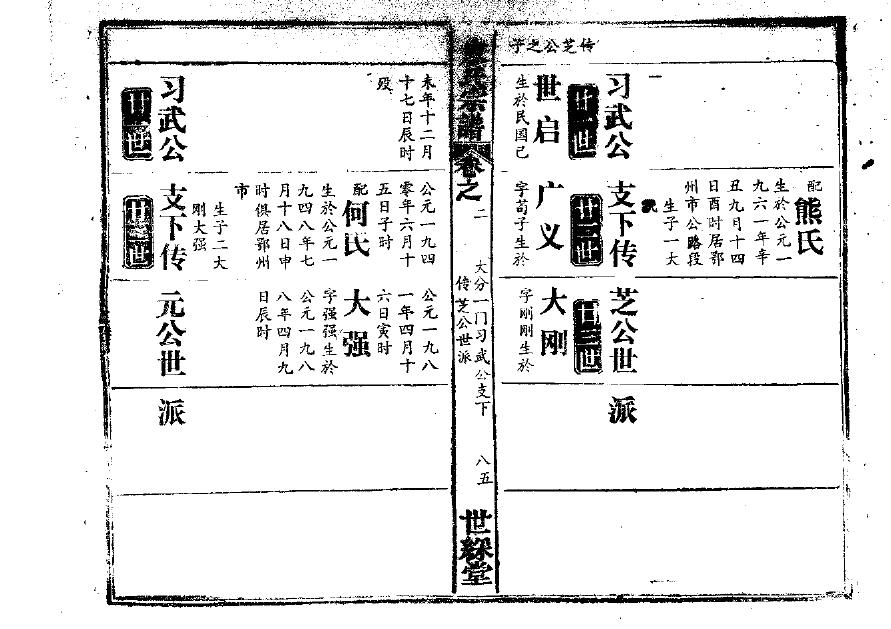 传芝公之子
配熊氏
生於公元一
九六一年辛
丑九月十四
日酉时居鄂
州市公路段
生子一大
习武公支下传芝公世派
廿一世
廿二世
廿三世
世启
生於民国己
广义
字荀子生於
大刚
字刚刚生於
氏宗谱
卷之二
大分一门习武公支下
传芝公世派
八五
世綵堂
未年十二月
十七日辰时
殁
公元一九四
零年六月十
五日子时
配何氏
生於公元一
九四八年七
月十八日申
时俱居鄂州
市
生子二大
刚大强
公元一九八
一年四月十
六日寅时
大强
字强强生於
公元一九八
八年四月九
日辰时
习武公支下传元公世派